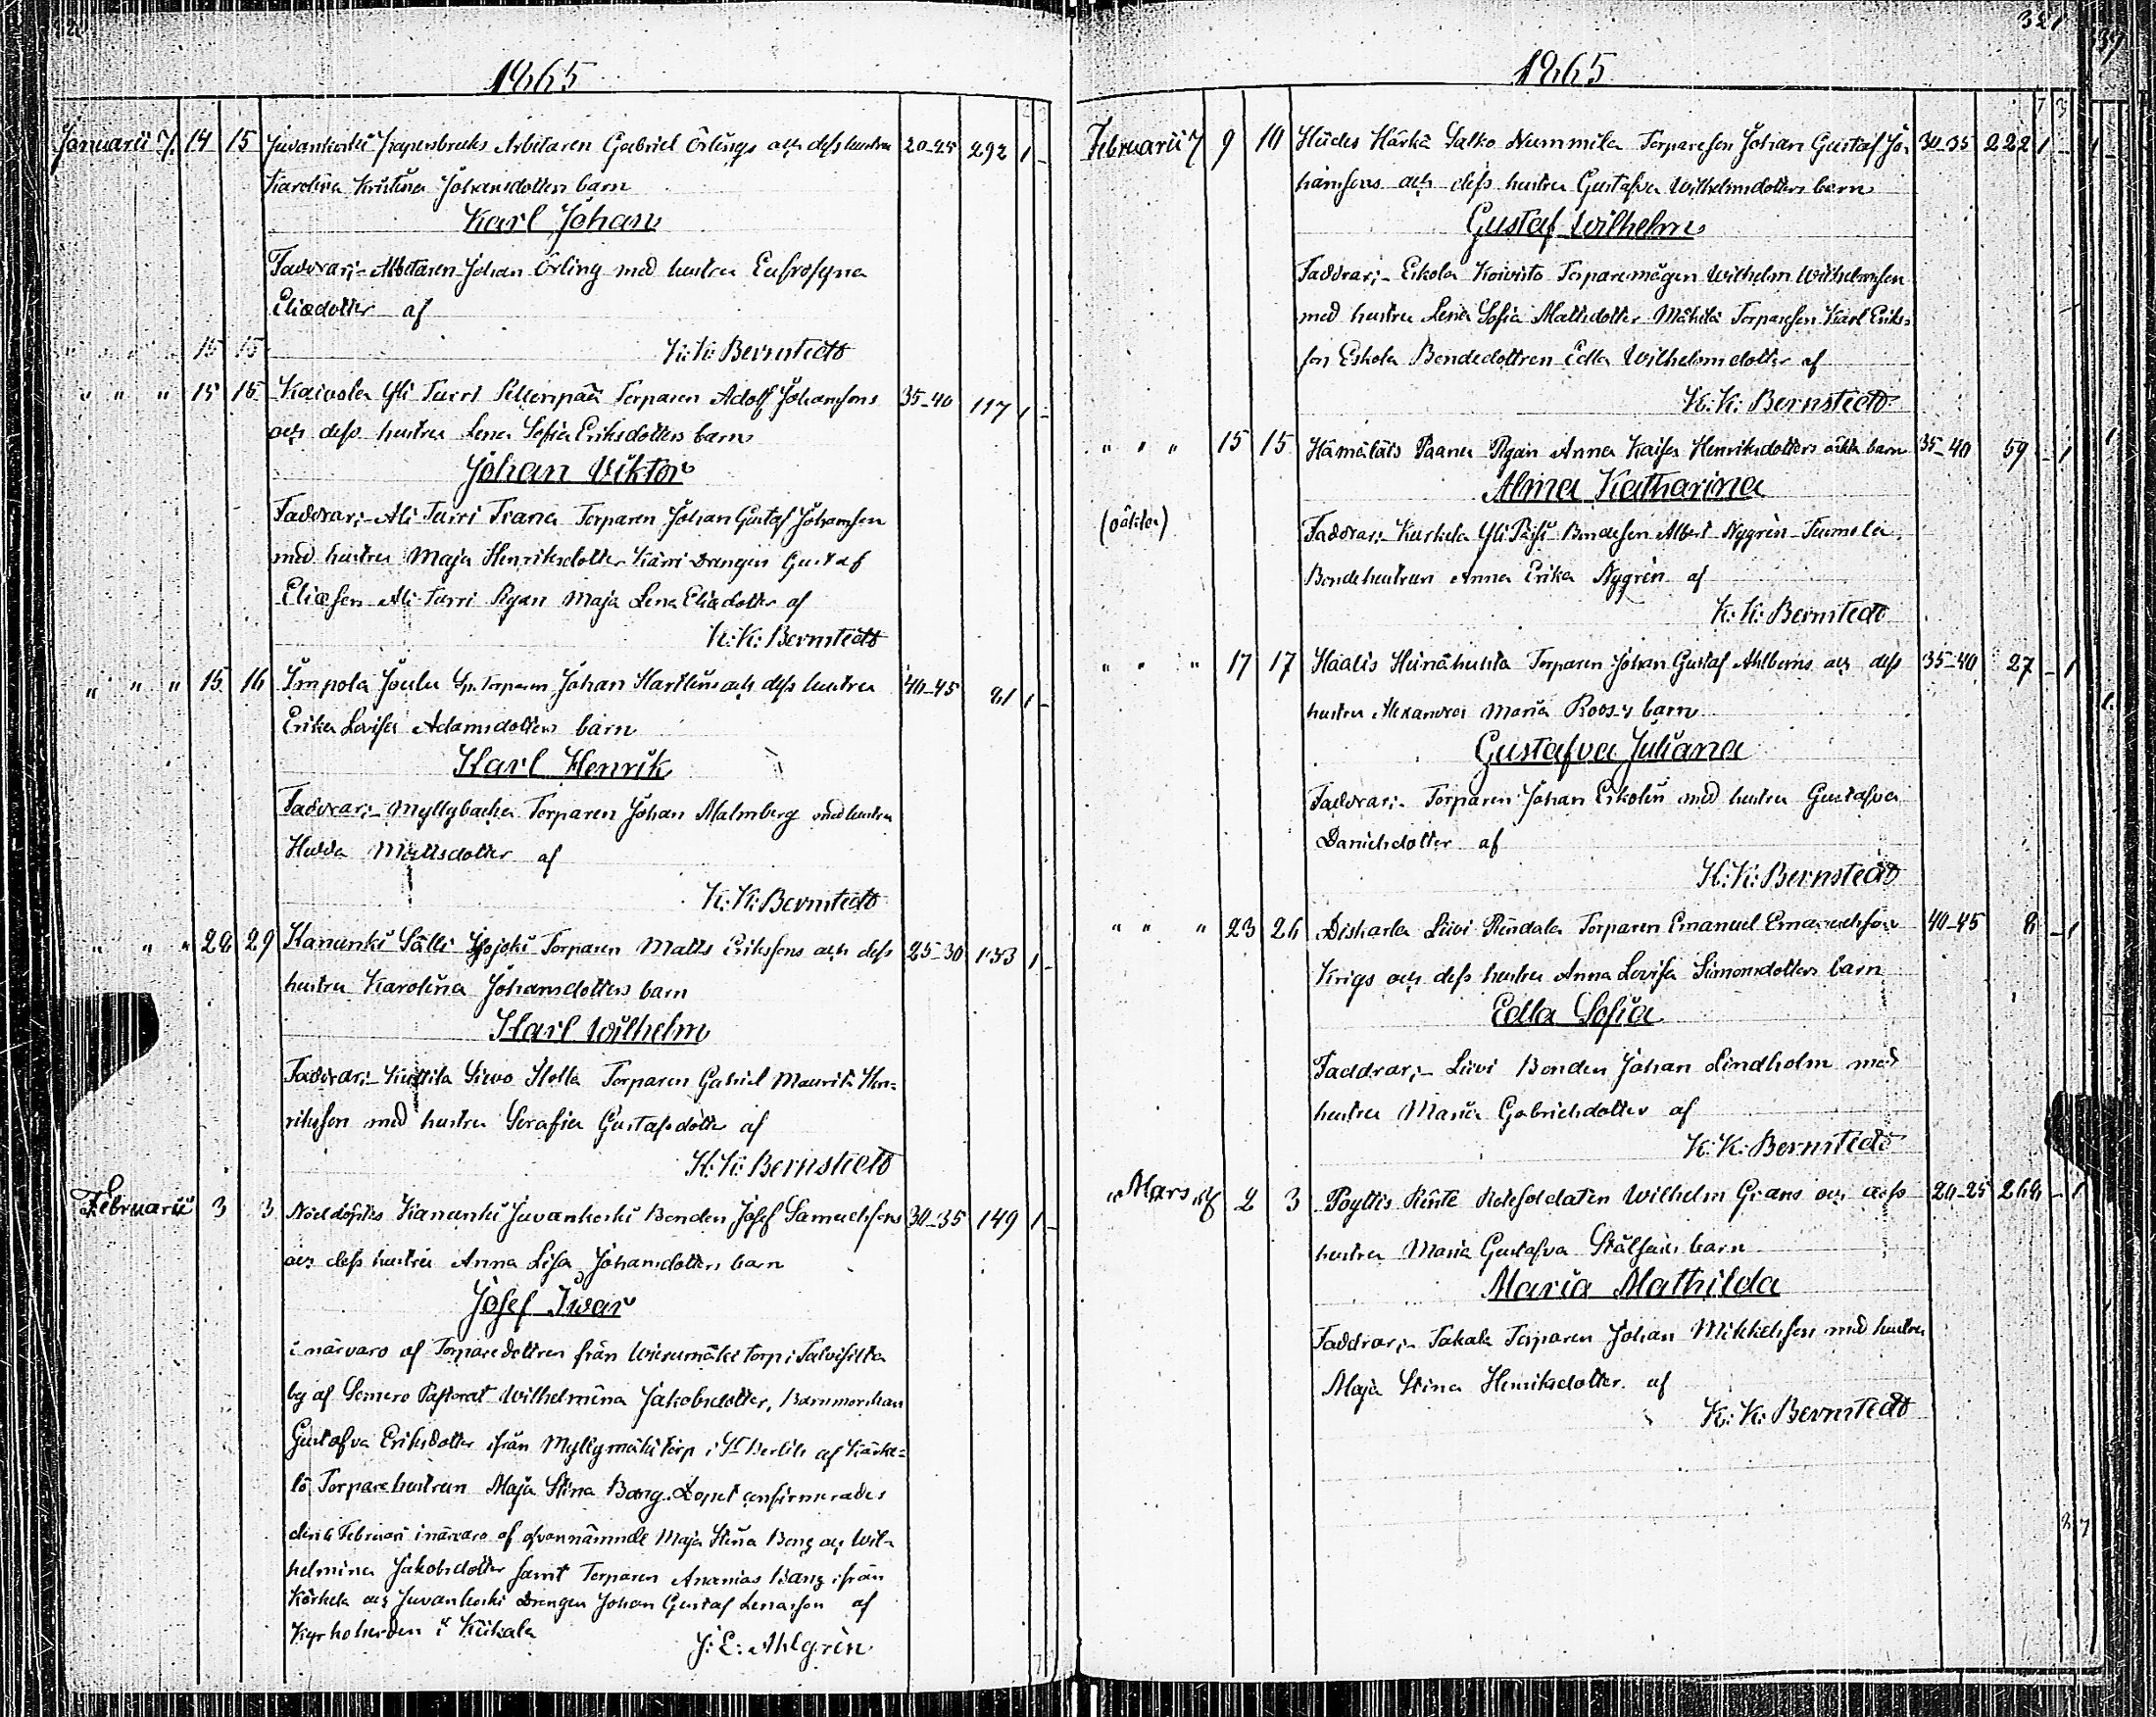 1865
Januarii 14 15 Juvankoski Papersbruks Arbetaren Gabriel Örlings och dess hustru 20-25 292 1 -
Karolina Kristina Johansdotters barn
Karl Johan
Faddrar;- Arbetaren Johan Örling med hustru Eufrosyna
Eliædotter af
15 15
K: K: Bernstedt
" " " 15 15 Kaivola Yli Turri Sillunpää Torparen Adolf Johanssons 35-40 117 1 -
och dess hustru Lena Sofia Eriksdotters barn
Johan Viktor
Faddrar;- Ali Turri Torparen Johan Gustaf Johansson
med hustru Maja Henriksdotter Kärri Drängen Gustaf
Eliæsson Ali Turri Pigan Maja Lena Eliædotter af
K: K: Bernstedt
" " " 15 16 Impola Joulu Torparen Johan Hartlins och dess hustru 40-45 81 1 -
Erika Lovisa Adamsdotters barn
Karl Henrik
Faddrar;- Myllybacka Torparen Johan Malmberg med hustru
Hedda Mattsdotter af
K: K: Bernstedt
" " " 28 29 Kanunki Sälli Torparen Matts Erikssons och dess 25-30 153 1 -
hustru Karolina Johansdotters barn
Karl Wilhelm
Faddrar;- Kuttila Torparen Gabriel Maurits Hen-
riksson med hustru Serafia Gustafsdotter af
K: K: Bernstedt
Februarii 3 3 Nöddöptes Kanunki Juvankoski Bonden Josef Samuelssons 30-35 149 1 -
och dess hustru Anna Lisa Johansdotters barn
Josef Iwar
i närvaro af Torparedottren från Wierumäki torp i Talvisilta
by af Somero Pastorat Wilhelmina Jakobsdotter, Barnmorskan
Gustafva Eriksdotter ifrån Myllymäki torp i St Bertils af Kärke-
lä Torparehustrun Maja Stina Bang. Dopet confirmerades
den 6 Februari i närvaro af ofvannämnde Maja Stina Bang och Wil-
helmina Jakobsdotter samt Torparen Ananias Bang ifrån
Kärkelä och Juvankoski Drängen Johan Gustaf Lenasson af
Kyrkoherden i Kiikala
J: E: Ahlgrèn
321
1865
Februarii 9 10 Hiides Härkä Salko Nummila Torparesson Johan Gustaf Jo- 30-35 222 1 -
hanssons och dess hustru Gustafva Wilhelmsdotters barn
Gustaf Wilhelm
Faddrar;- Eskola Koivisto Torparemågen Wilhelm Wilhelmsson
med hustru Lena Sofia Mattsdotter Mähilä Torparesson Karl Eriks-
son Eskola Bondedottren Edla Wilhelmsdotter af
K: K: Bernstedt
" " " 15 15 Hämäläis Paanu Pigan Anna Kaisa Henriksdotters oäkta barn 35-40 59 - 1
Alma Katharina
(oäkta)
Faddrar;- Kurkela Yli Päisi Bondesson Albert Nygrèn Tuomola
Bondehustrun Anna Erika Nygrèn af
K: K: Bernstedt
" " " 17 17 Haalis Heinähuhta Torparen Johan Gustaf Ahlbems och dess 35-40 27 - 1
hustru Alexandra Maria Roos's barn
Gustafva Juliana
Faddrar;- Torparen Johan Eskolin med hustru Gustafva
Danielsdotter af
K: K: Bernstedt
" " " 23 26 Diskarla Liivi Rindala Torparen Emanuel Emanuelsson 40-45 8 - 1
Krigs och dess hustru Anna Lovisa Simonsdotters barn
Edla Sofia
Faddrar;- Liivi Bonden Johan Lindholm med
hustru Maria Gabrielsdotter af
K: K: Bernstedt
Mars 2 3 Pöyltis Rotesoldaten Wilhelm Grans och dess 20-25 268 - 1
hustru Maria Gustafva barn
Maria Mathilda
Faddrar;- Takala Torparen Johan Mikkelsson med hustru
Maja Stina Henriksdotter af
K: K: Bernstedt